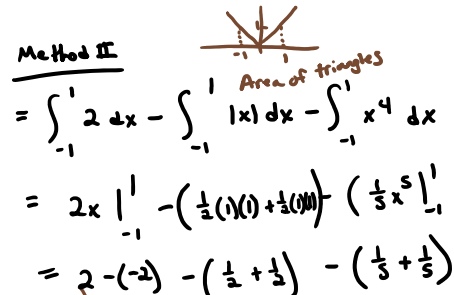 1
-1 1
Method II
Area of triangles
= ∫_{-1}^{1} 2 dx - ∫_{-1}^{1} |x| dx - ∫_{-1}^{1} x^4 dx
= 2x |_{-1}^{1} - (1/2(1)(1) + 1/2(1)(1)) - (1/5 x^5 |_{-1}^{1}
= 2 - (-2) - (1/2 + 1/2) - (1/5 + 1/5)